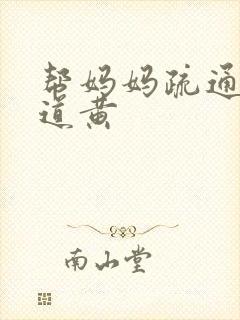 帮妈妈疏通
道黄
南山堂